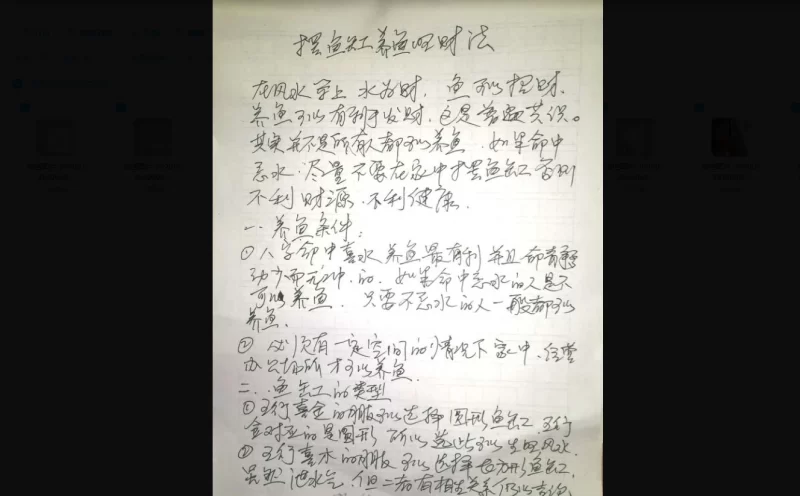 摆鱼缸养鱼旺财法
在风水学上 水为财, 鱼可以招财,
养鱼可以有利于发财, 这是普遍共识。
其实并不是所有人都可以养鱼, 如果命中
忌水, 尽量不要在家中摆鱼缸 否则
不利财源, 不利健康,
一、养鱼条件:
①八字命中喜水 养鱼最有利 并且命
少而无冲 的, 如果命中忌水的人是不
可以养鱼, 只要不忌水的人一般都可以
养鱼.
② 必须有一定空间的情况下 家中、经营
办公场所才可以养鱼.
二、鱼缸的类型
①五行喜金的朋友可以选择圆形鱼缸, 五行
金对应的是圆形 所以选此可以生旺风水
② 五行喜木的朋友 可以选择长方形鱼缸,
虽然泄水气 但二者有相生关系